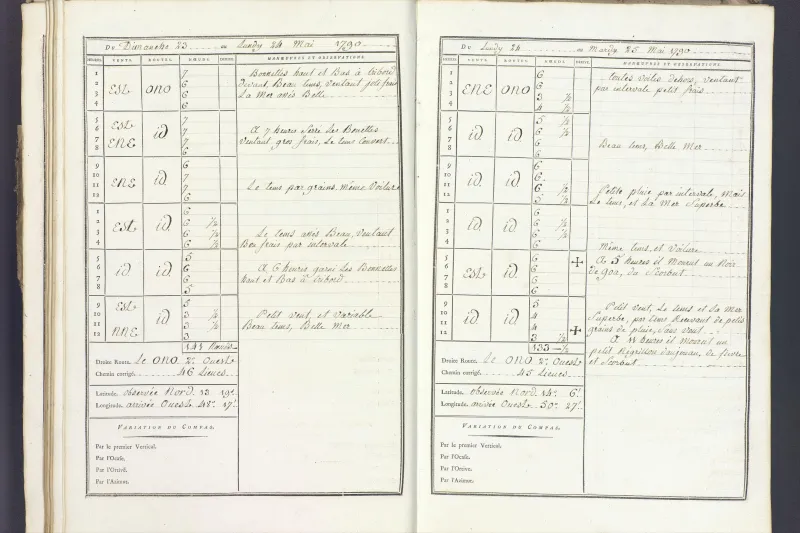 Du Dimanche 23 au Lundy 24 Mai 1790
HEURES. VENTS. ROUTES. NŒUDS. MANŒUVRES ET OBSERVATIONS.
1 7 Bonnettes haut et Bas à tribord
2 Est ono 6 Devant, Beau tems, ventant joli frais
3 6 La Mer assés Belle
4 6
5 Est 7
6 id 7 A 7 heures Serré Les Bonettes
7 ENE 7 ventant gros frais, Le tems couvert
8 6
9 6
10 ENE id 7
11 7 Le tems par grains, même Voilure
12 6
1 6
2 Est id 6 ½
3 6 ½ Le tems assés Beau, Ventant
4 6 ½ Bon frais par intervale
5 5
6 id id 6 A 6 heures garni Les Bonnettes
7 6 haut et Bas à tribord
8 5
9 Est 5
10 id 3 ½ Petit vent, et variable
11 3 ½ Beau tems, Belle Mer
12 NNE 3
141 Nœuds
Droite Route. Le ONO 2º Ouest
Chemin corrigé. 46 Lieues
Latitude. observée Nord 13 19'
Longitude. arrivée Ouest 48º 17'
VARIATION DU COMPAS.
Par le premier Vertical.
Par l'Ocase.
Par l'Ortive.
Par l'Azimut.
Du Lundy 24 au Mardy 25 Mai 1790
HEURES. VENTS. ROUTES. NŒUDS. MANŒUVRES ET OBSERVATIONS.
1 6 toutes voiles dehors, ventant
2 ENE ONO 6 par intervale petit frais
3 3 ½
4 4 ½
5 5 ½
6 id id 6 ½
7 6
8 6 Beau tems, Belle Mer
9 6
10 id id 6
11 6 ½ Petite pluie par intervale, Mais
12 5 ½ Le tems, et La Mer Superbe
1 6
2 id id 6 ½
3 6 ½
4 6 Même tems, et Voilure
5 6 A 5 heures il Mourut un Noir
6 Est id 6 de goa, du Scorbut
7 6
8 6
9 5 Petit vent, Le tems, et La Mer
10 id id 4 Superbe, par tems de petis
11 4 grains de pluie, sans vent
12 3 ½ A 11 heures il Mourut un
133 ½ petit Négrillon de fievre
Droite Route. Le ONO 2º Ouest et Scorbut
Chemin corrigé. 45 Lieues
Latitude. observée Nord 14º 6'
Longitude. arrivée Ouest 50º 27'
VARIATION DU COMPAS.
Par le premier Vertical.
Par l'Ocase.
Par l'Ortive.
Par l'Azimut.